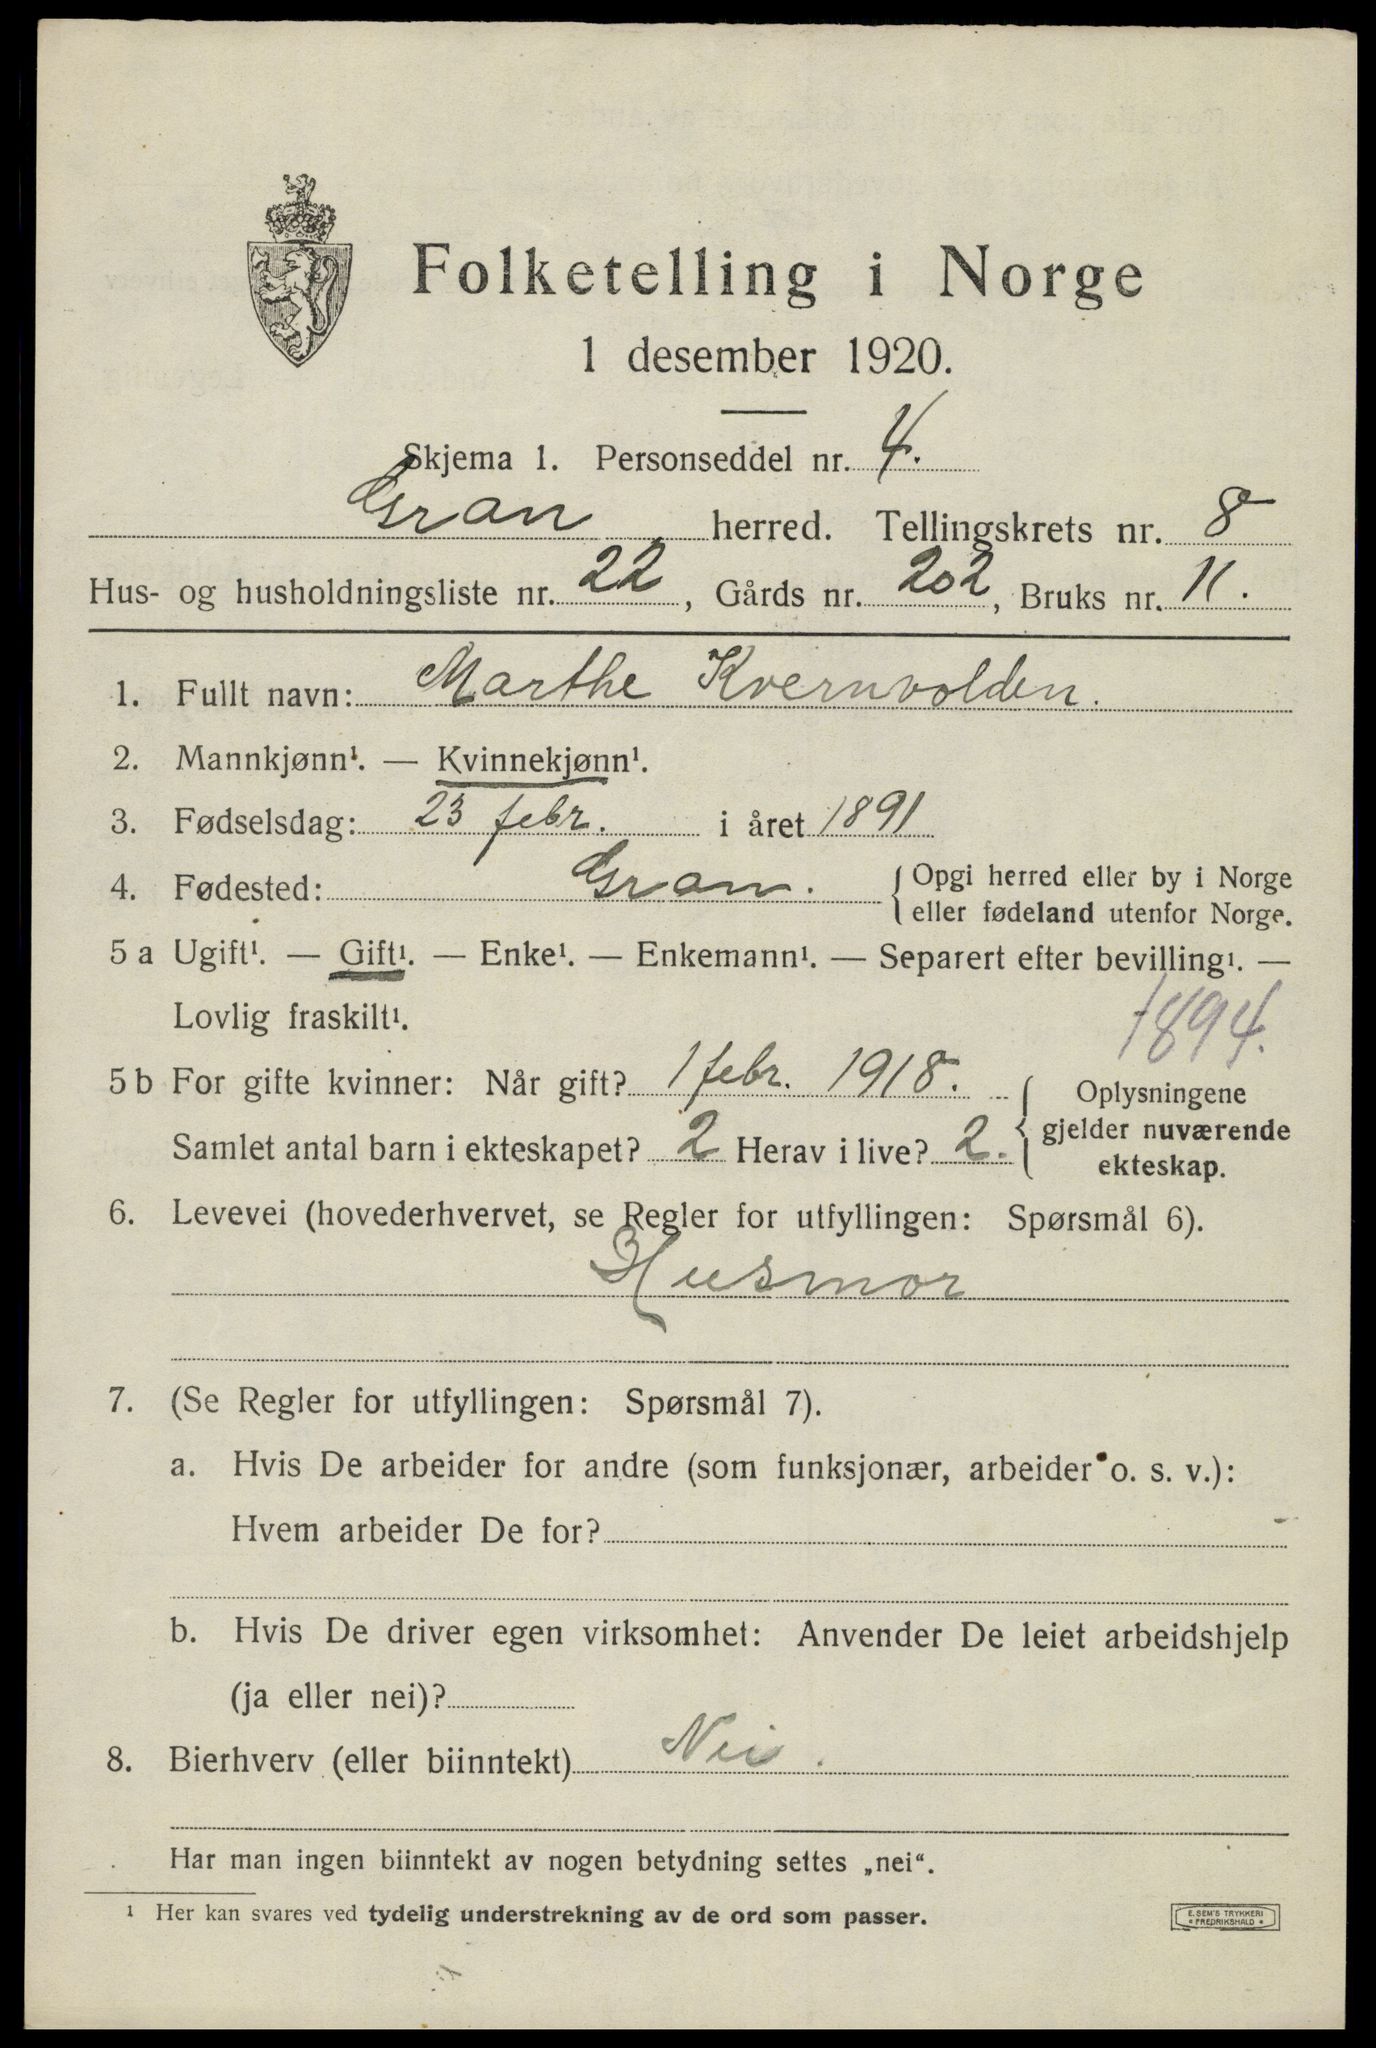 Folketelling i Norge
1 desember 1920.
Skjema 1. Personseddel nr. 4.
Gran herred. Tellingskrets nr. 8
Hus- og husholdningsliste nr. 22, Gårds nr. 202, Bruks nr. 11.
1. Fullt navn: Marthe Kvernvolden.
2. Mannkjønn¹. — Kvinnekjønn¹.
3. Fødselsdag: 23 febr. i året 1891
4. Fødested: Gran. { Opgi herred eller by i Norge
eller fødeland utenfor Norge.
5 a Ugift¹. — Gift¹. — Enke¹. — Enkemann¹. — Separert efter bevilling¹. —
Lovlig fraskilt¹.
1894.
5 b For gifte kvinner: Når gift? 1 febr. 1918. { Oplysningene
gjelder nuværende
Samlet antal barn i ekteskapet? 2 Herav i live? 2. ekteskap.
6. Levevei (hovederhvervet, se Regler for utfyllingen: Spørsmål 6).
Husmor
7. (Se Regler for utfyllingen: Spørsmål 7).
a. Hvis De arbeider for andre (som funksjonær, arbeider o. s. v.):
Hvem arbeider De for?
b. Hvis De driver egen virksomhet: Anvender De leiet arbeidshjelp
(ja eller nei)?
8. Bierhverv (eller biinntekt) Nei.
Har man ingen biinntekt av nogen betydning settes „nei“.
¹ Her kan svares ved tydelig understrekning av de ord som passer.
E. SEM'S TRYKKERI
• FREDRIKSHALD •